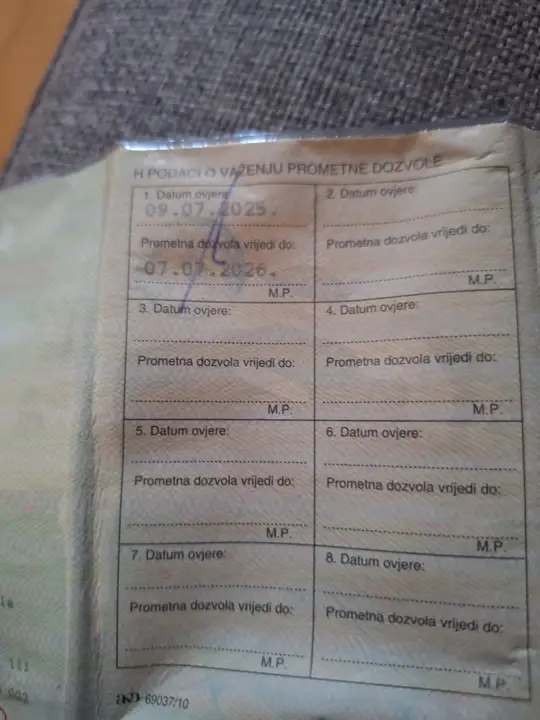 H PODACI O VAŽENJU PROMETNE DOZVOLE
1. Datum ovjere
09.07.2025.
Prometna dozvola vrijedi do:
07.07.2026.
M.P.
2. Datum ovjere:
Prometna dozvola vrijedi do:
M.P.
3. Datum ovjere:
Prometna dozvola vrijedi do:
M.P.
4. Datum ovjere:
Prometna dozvola vrijedi do:
M.P.
5. Datum ovjere:
Prometna dozvola vrijedi do:
M.P.
6. Datum ovjere:
Prometna dozvola vrijedi do:
M.P.
7. Datum ovjere:
Prometna dozvola vrijedi do:
M.P.
8. Datum ovjere:
Prometna dozvola vrijedi do:
M.P.
69037/10